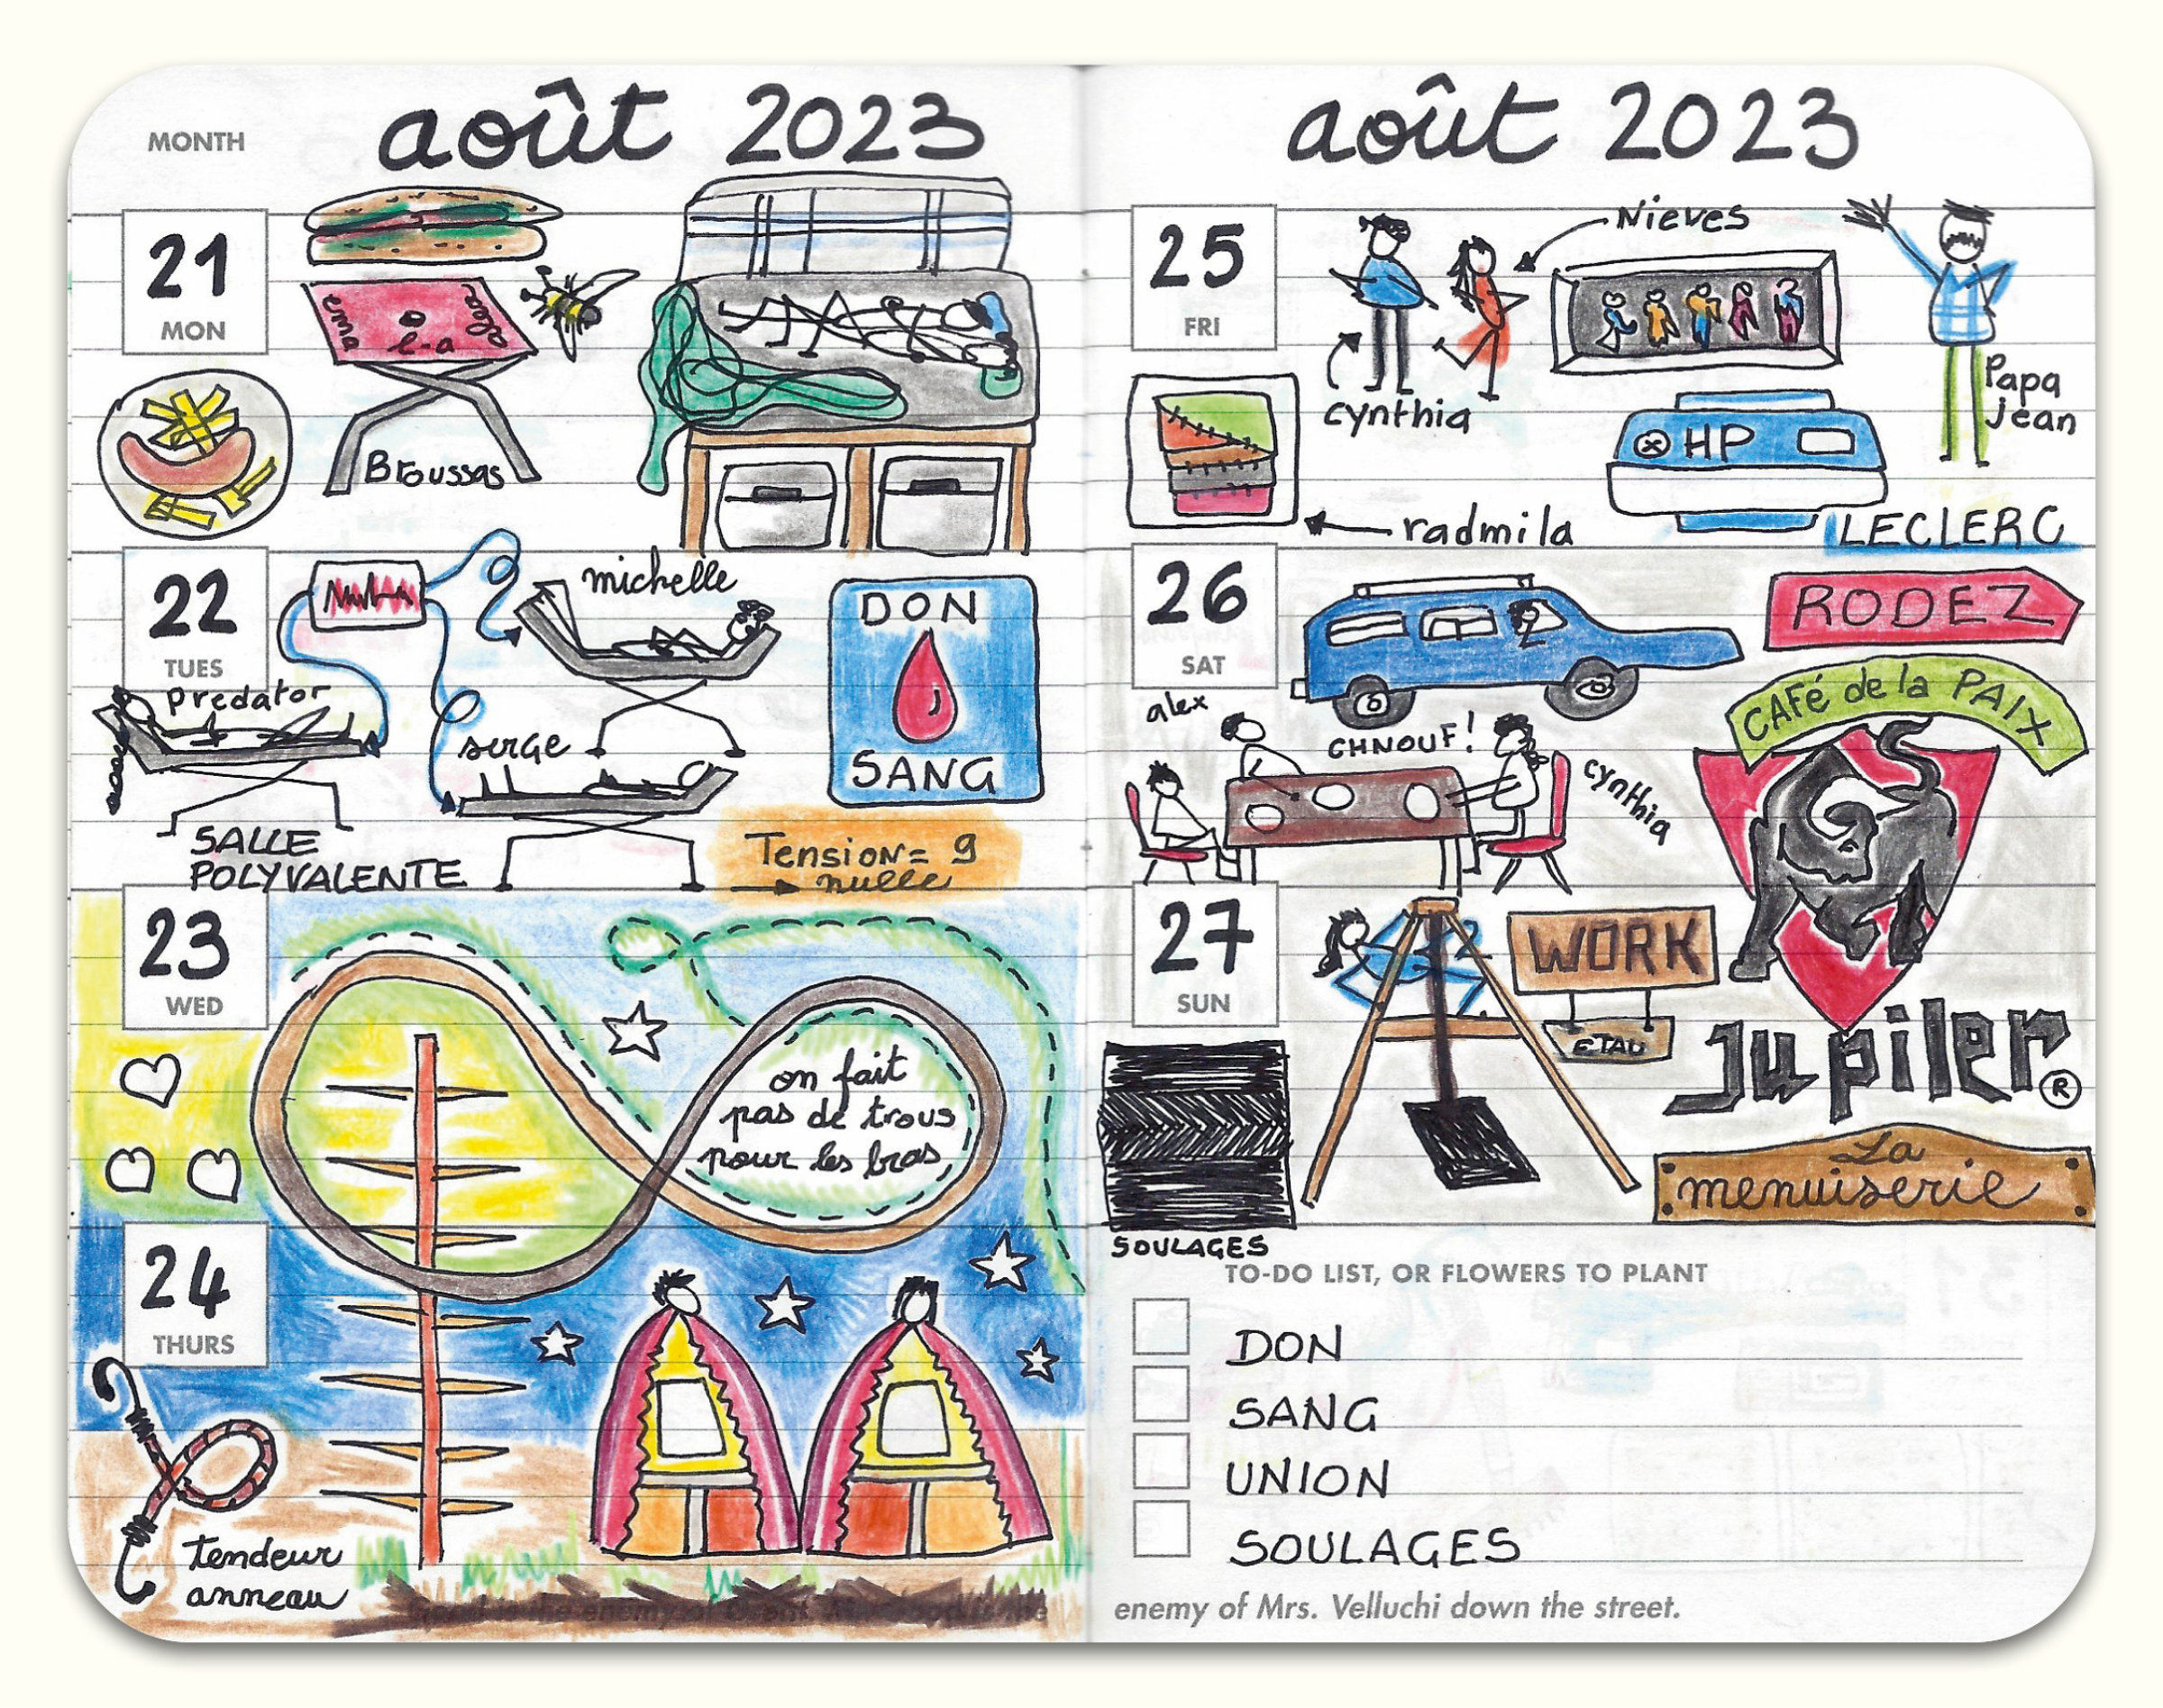 MONTH
août 2023
21
MON
Broussas
22
TUES
michelle
predator
serge
DON
SANG
SALLE
POLYVALENTE
Tension = 9
nulle
23
WED
on fait
pas de trous
pour les bras
24
THURS
tendeur
anneau
août 2023
25
FRI
Nieves
cynthia
Papa
jean
HP
radmila
LECLERC
26
SAT
RODEZ
alex
CHNOUF!
cynthia
CAFé de la PAIX
27
SUN
WORK
ETAU
Jupiler®
La
menuiserie
SOULAGES
TO-DO LIST, OR FLOWERS TO PLANT
DON
SANG
UNION
SOULAGES
enemy of Mrs. Velluchi down the street.